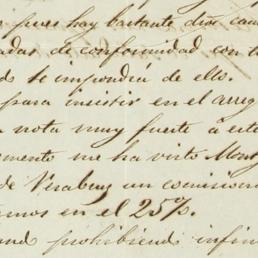 pues hay bastante dias
adas de conformidad con
se impondrá de ello.
para insistir en el arreg
nota muy fuerte á este
mente me ha visto Mont
de Veracruz un comisiona
mos en el 25%.
prohibiendo infin